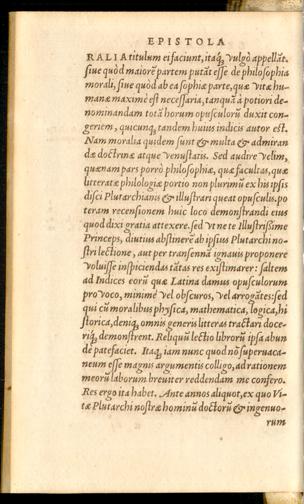 EPISTOLA
RALIA titulum ei faciunt, itaq́; vulgò appellãt.
siue quòd maiorẽ partem putãt esse de philosophia
morali, siue quòd ab ea sophiæ parte, quæ vitæ hu-
manæ maximè est necessaria, tanquã à potiori de-
nominandam totã horum opusculorũ duxit con-
geriem, quicunq; tandem huius indicis autor est.
Nam moralia quidem sunt & multa & admiran
dæ doctrinæ atque venustatis. Sed audire velim,
quænam pars porrò philosophiæ, quæ facultas, quæ
litteratæ philologiæ portio non plurimũ ex his ipsis
disci Plutarchianis & illustrari queat opusculis. po
teram recensionem huic loco demonstrandi eius
quod dixi gratia attexere. sed vt ne te Illustrißime
Princeps, diutius abstinerẽ ab ipsius Plutarchi no-
stri lectione, aut per transennã ignauis proponere
voluisse inspiciendas tãtas res existimarer: saltem
ad Indices eorũ quæ Latina damus opusculorum
prouoco, minimè vel obscuros, vel arrogãtes: sed
qui cũ moralibus physica, mathematica, logica, hi
storica, deniq; omnis generis litteras tractari doce-
riq́; demonstrent. Reliquũ lectio librorũ ipsa abun
dè patefaciet. Itaq; iam nunc quod nõ superuaca-
neum esse magnis argumentis colligo, ad rationem
meorũ laborum breuiter reddendam me confero.
Res ergo ita habet. Ante annos aliquot, ex quo Vi-
tæ Plutarchi nostræ hominũ doctorũ & ingenuo-
rum